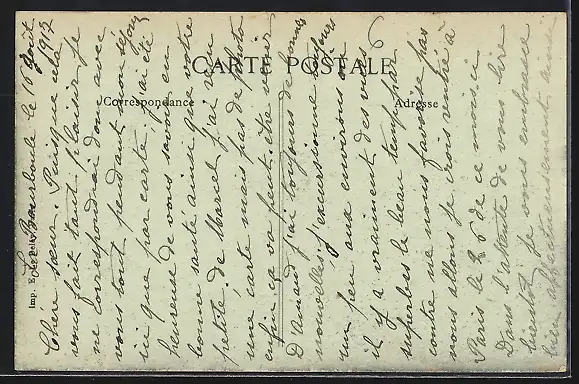 CARTE POSTALE
Correspondance
Adresse
La Bourboule le 16 Août
1917
Chère sœur Puisque cela
vous fait tant plaisir je
ne correspondrai donc avec
vous tout pendant mon séjour
ici que par carte, j'ai été
heureuse de vous savoir en
bonne santé ainsi que votre
petite. de Marcel j'ai reçu
une carte mais pas de photo
enfin ça va peut-être venir
D'Amand j'ai toujours de bonnes
nouvelles J'excursionne toujours
un peu aux environs où
il y a vraiment des vues
superbes le beau temps par
contre ne nous favorise pas
nous allons je crois rentrer à
Paris le 26 de ce mois-ci
Dans l'attente de vous lire
bientôt je vous embrasse
bien affectueusement ainsi
Imp. E.